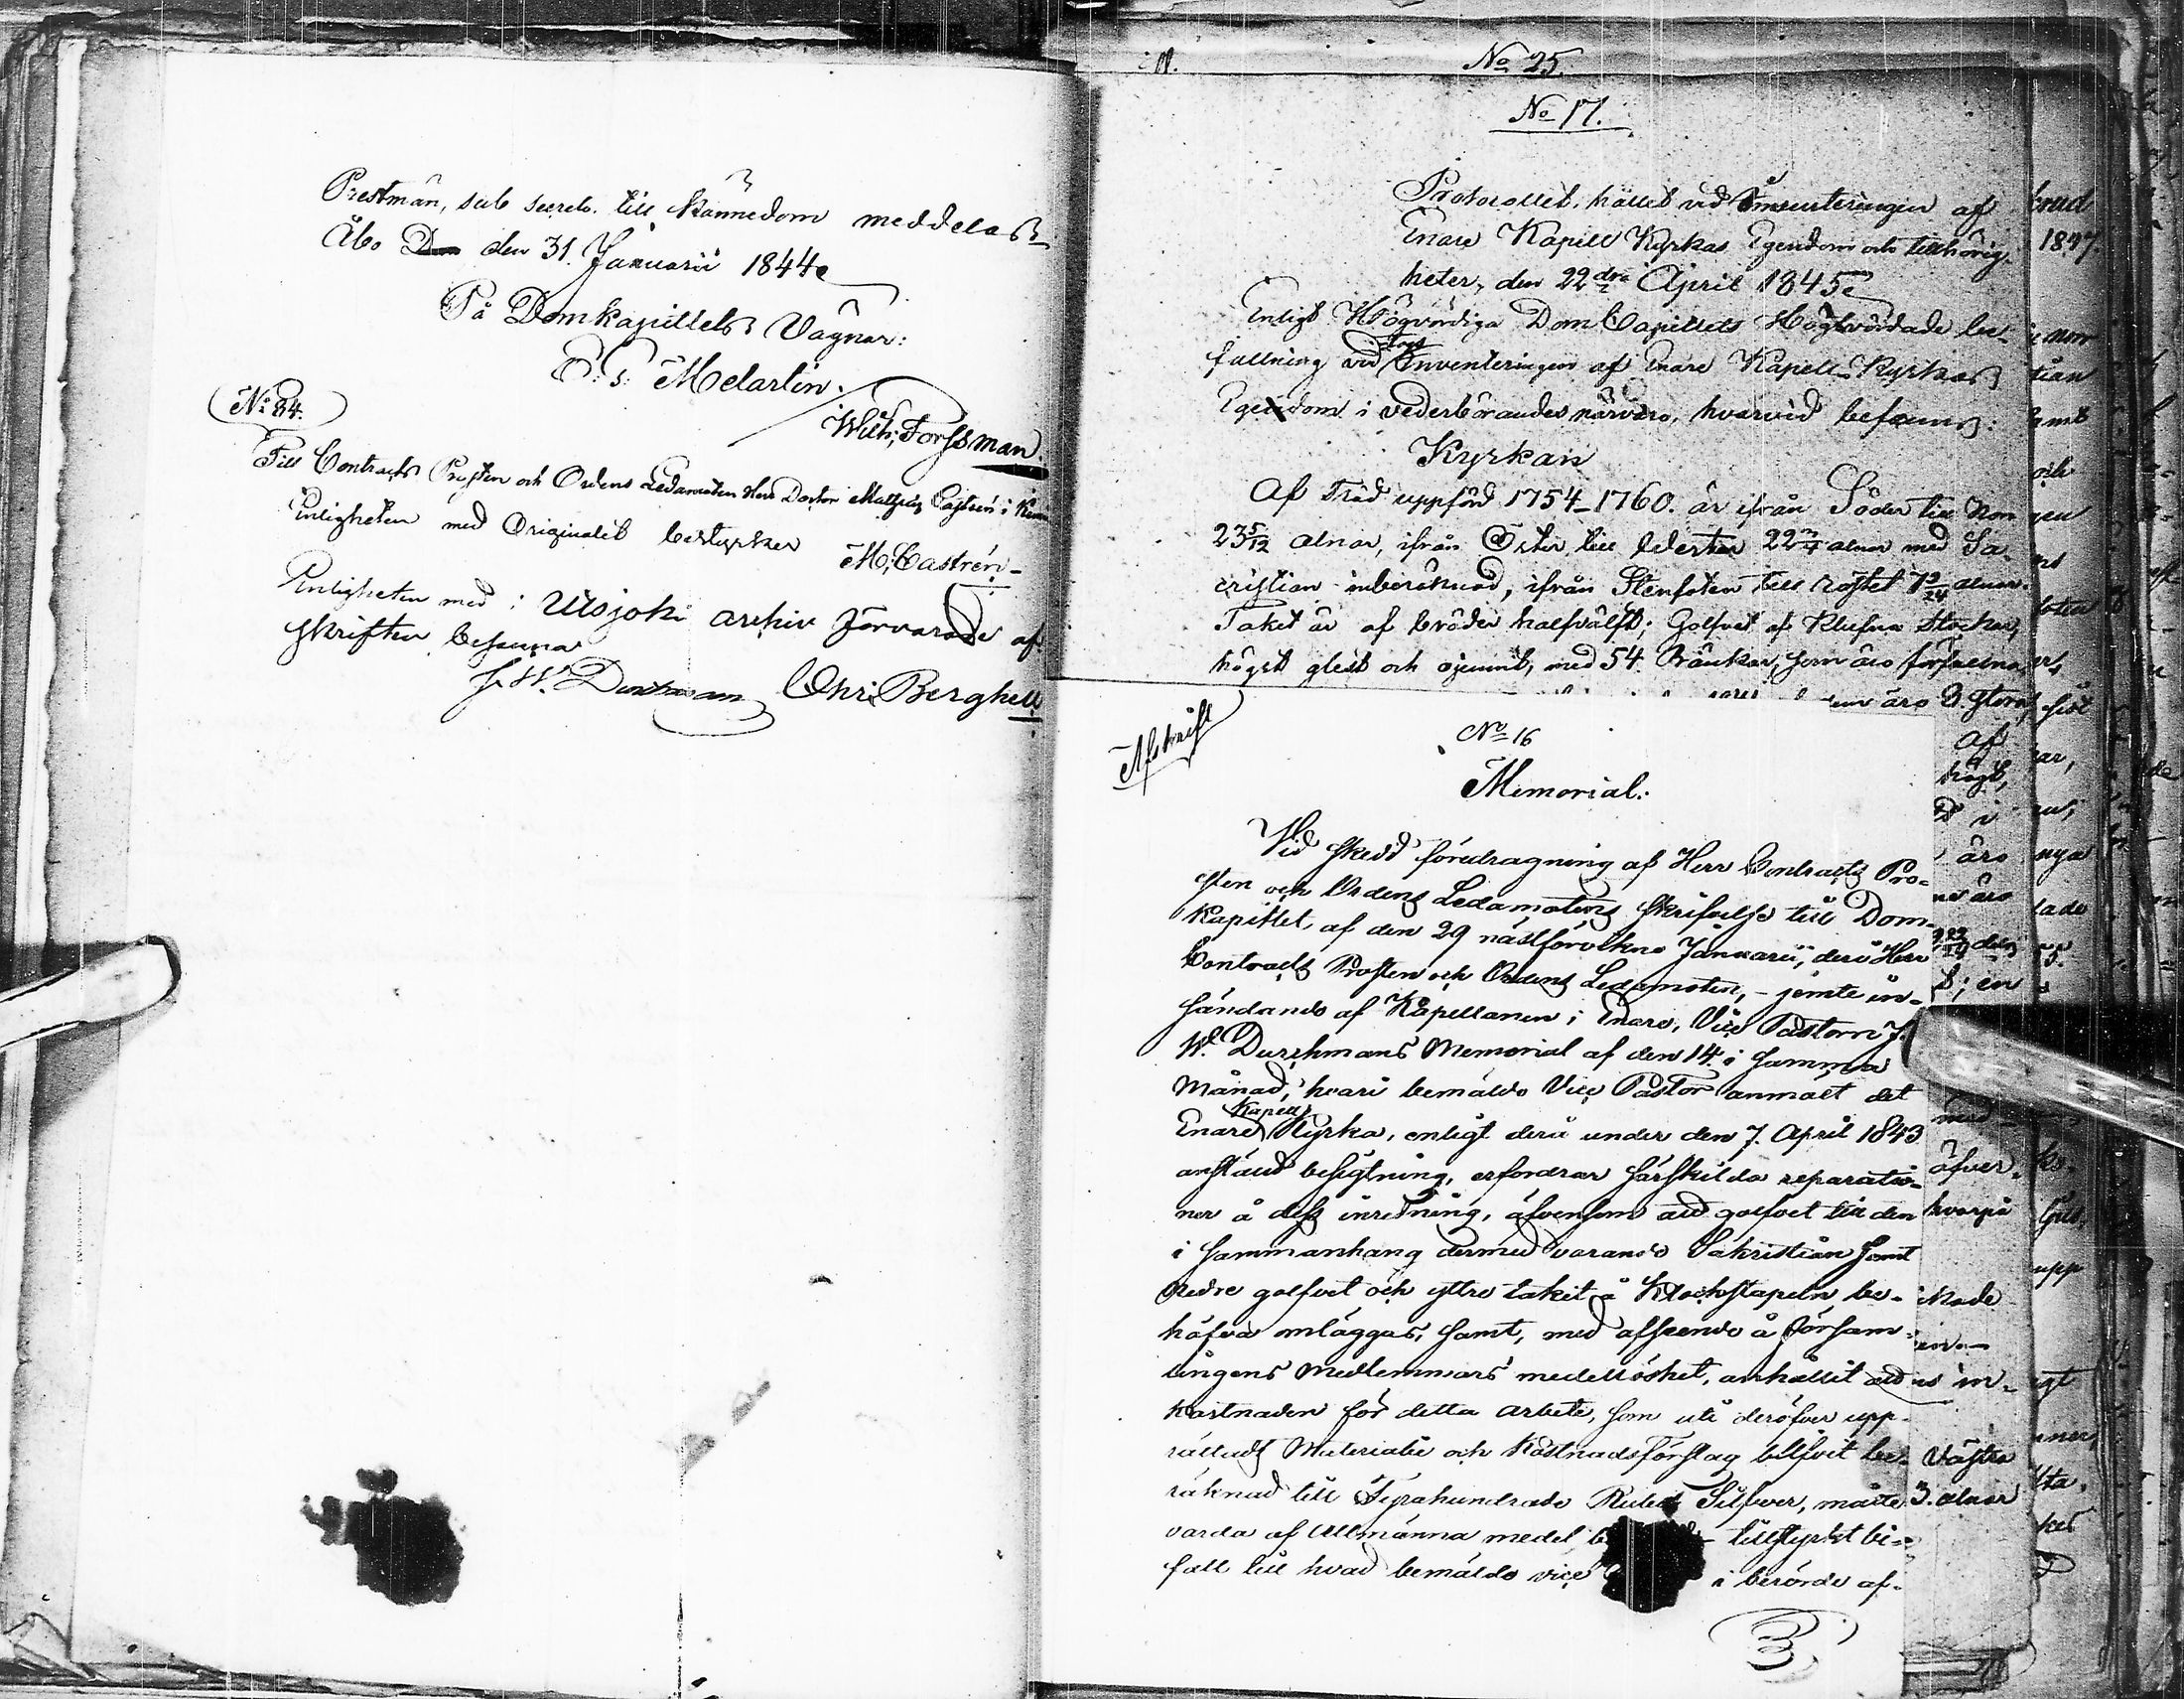 Prestmän, sub secreto. till kännedom meddelas
Åbo den 31. Januarii 1844.
På Domkapitlets Vägnar:
E. G. Melartin.
Wilh. Forssman.
No 84.
Till Contracts Prosten och Ordens Ledamoten Herr Doctor Matthias Castrén i
Enligheten med Originalet bestyrker
M. Castrén
Enligheten med i Utsjoki archiv förvarade af-
skriften besanna
J. W. Durchman Chr. Berghell
No 25.
No 17.
Protocollet, hållet vid Inventeringen af
Enare Kapell Kyrkas Egendom och tillhörig-
heter, den 22dra April 1845.
Enligt Högvördiga DomCapitlets Högtvördade be-
fallning vid Inventeringen af Enare Kapell Kyrkas
Egendom i vederbörandes närvaro, hvarvid befanns:
Kyrkan
Af Träd uppförd 1754-1760. är ifrån Söder till Norr
23 5/12 alnar, ifrån Öster till Wester 22 3/4 alnar med Sa-
cristian inberäknad, ifrån Stenfoten till röstet alnar.
Taket är af bräder halfvälft; Golfvet af klufna Stockar,
högst glest och ojemnt, med 54 Bänkar, som äro förfallna,
Afskrift
No 16
Memorial.
Vid skedd föredragning af Herr Contracts Pro-
sten och Ordens Ledamotens skrifvelse till Dom-
Kapitlet, af den 29 nästförvikne Januarii, deri Herr
Contracts Prosten och Ordens Ledamoten, - jemte in-
sändande af Kapellanen i Enare, Vice Pastorn J.
W. Durchmans Memorial af den 14 i samma
Månad, hvari bemälde Vice Pastor anmält det
Kapell
Enare Kyrka, enligt derå under den 7. April 1843
anstäld besigtning, erfordrar särskilda reparatio-
ner å dess inredning, äfvensom att golfvet till den
i sammanhang dermed varande Sakristian samt
nedre golfvet och yttre taket å Klockstapeln be-
höfva omläggas, samt, med afseende å Försam-
lingens Medlemmars medellöshet, anhållit att
kostnaden för detta arbete, som uti deröfver upp-
rättadt Materialie och Kostnadsförslag blifvit be-
räknad till Fyrahundrade Rubel Silfver, måtte
varda af Allmänna medel tillstyrkt bi-
fall till hvad bemälde vice i berörde af-
3